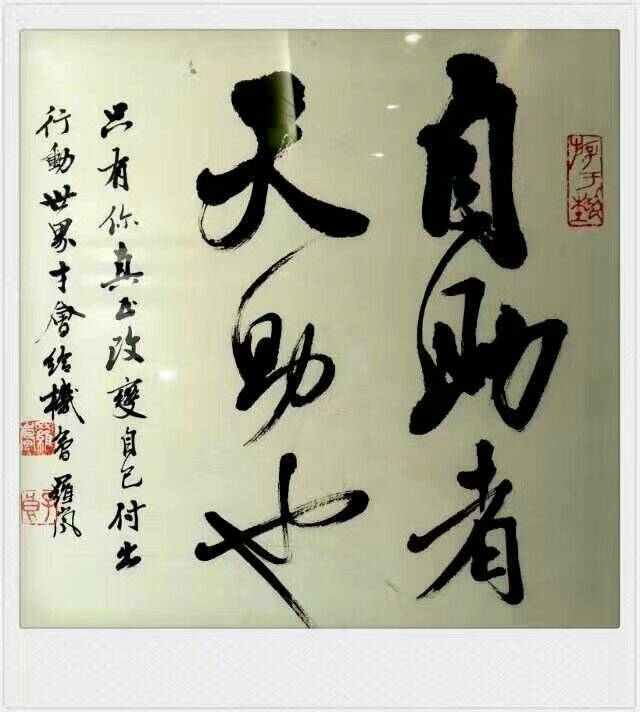 自助者
天助也
只有你真正改變自己付出
行動世界才會給機會 羅嵐
游于藝